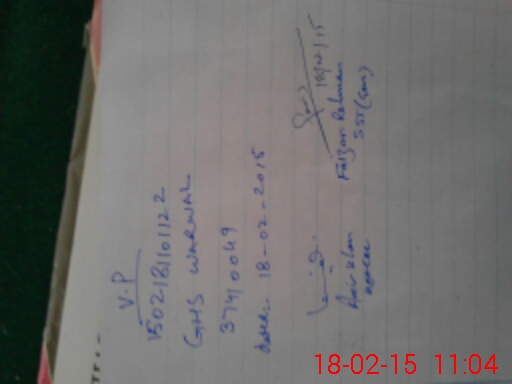 V.P
1502181101122
GHS WARWAL
37410049
Date. 18-02-2015
Amir Khan
18/02/15
Faizan Rehman
SST(Gen)
18-02-15 11:04